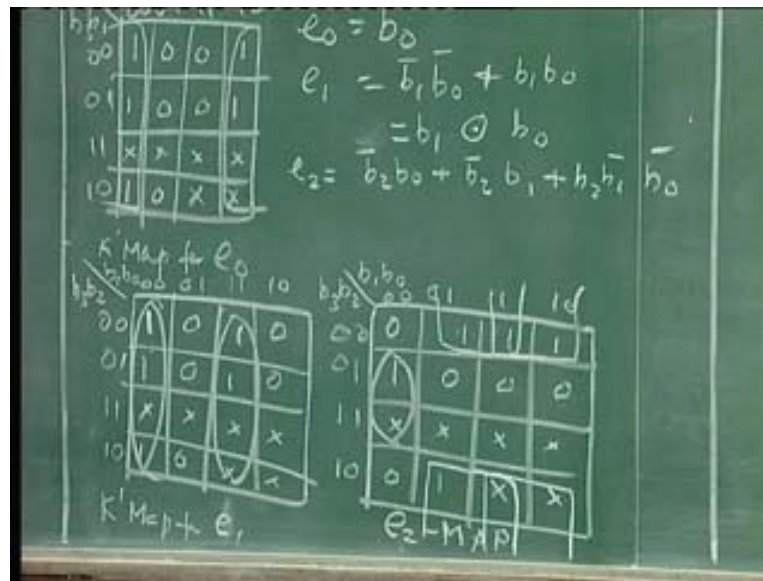 00 1 0 0 1
01 1 0 0 1
11 x x x x
10 1 0 x x
K'Map for e₀
e₀ = b̄₀
e₁ = b̄₁b̄₀ + b₁b₀
= b₁ ⊙ b₀
e₂ = b̄₂b₀ + b̄₂b₁ + b₂b̄₁ b̄₀
b₃b₂ b₁b₀ 00 01 11 10
00 1 0 1 0
01 1 0 1 0
11 x x x x
10 1 0 x x
K'Map for e₁
b₃b₂ b₁b₀ 00 01 11 10
00 0 1 1 1
01 1 0 0 0
11 x x x x
10 0 1 x x
e₂-MAP